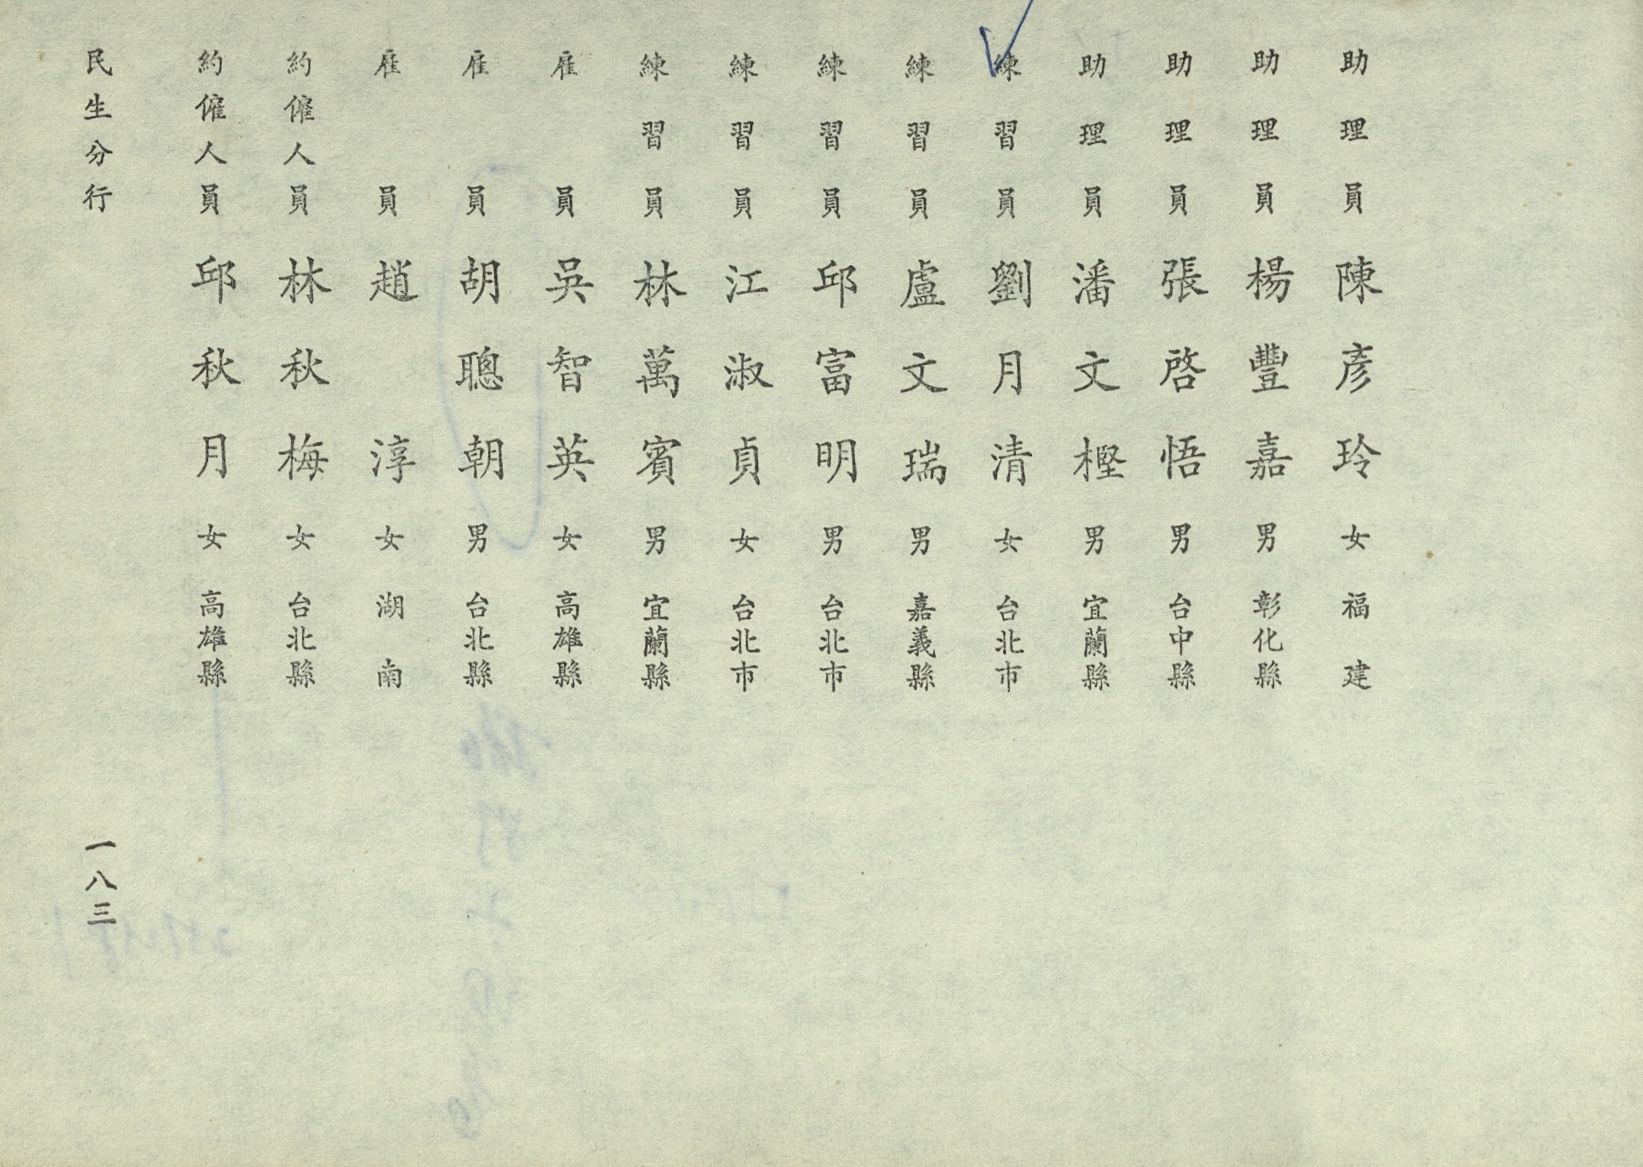 助理員 陳彦玲 女 福建
助理員 楊豐嘉 男 彰化縣
助理員 張啓悟 男 台中縣
助理員 潘文樫 男 宜蘭縣
練習員 劉月清 女 台北市
練習員 盧文瑞 男 嘉義縣
練習員 邱富明 男 台北市
練習員 江淑貞 女 台北市
練習員 林萬賓 男 宜蘭縣
雇員 吳智英 女 高雄縣
雇員 胡聰朝 男 台北縣
雇員 趙淳 女 湖南
約僱人員 林秋梅 女 台北縣
約僱人員 邱秋月 女 高雄縣
民生分行
一八三